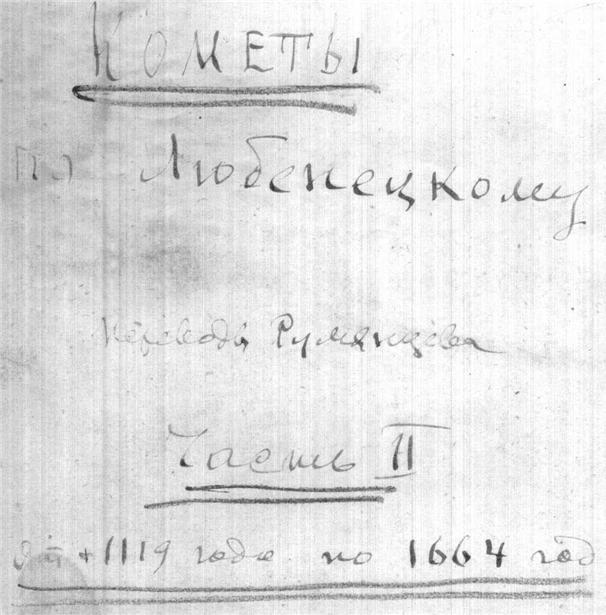 КОМЕТЫ
по Любенецкому
переводъ Румянцева
Часть II
отъ +1119 года по 1664 год